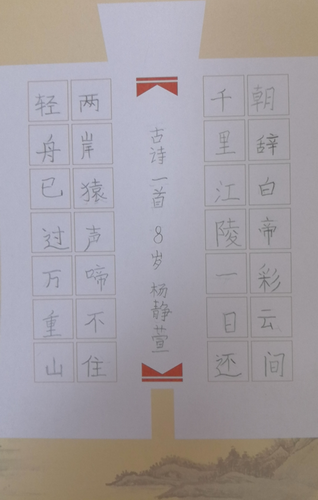 朝辞白帝彩云间
千里江陵一目还
古诗一首 8岁 杨静萱
两岸猿声啼不住
轻舟已过万重山